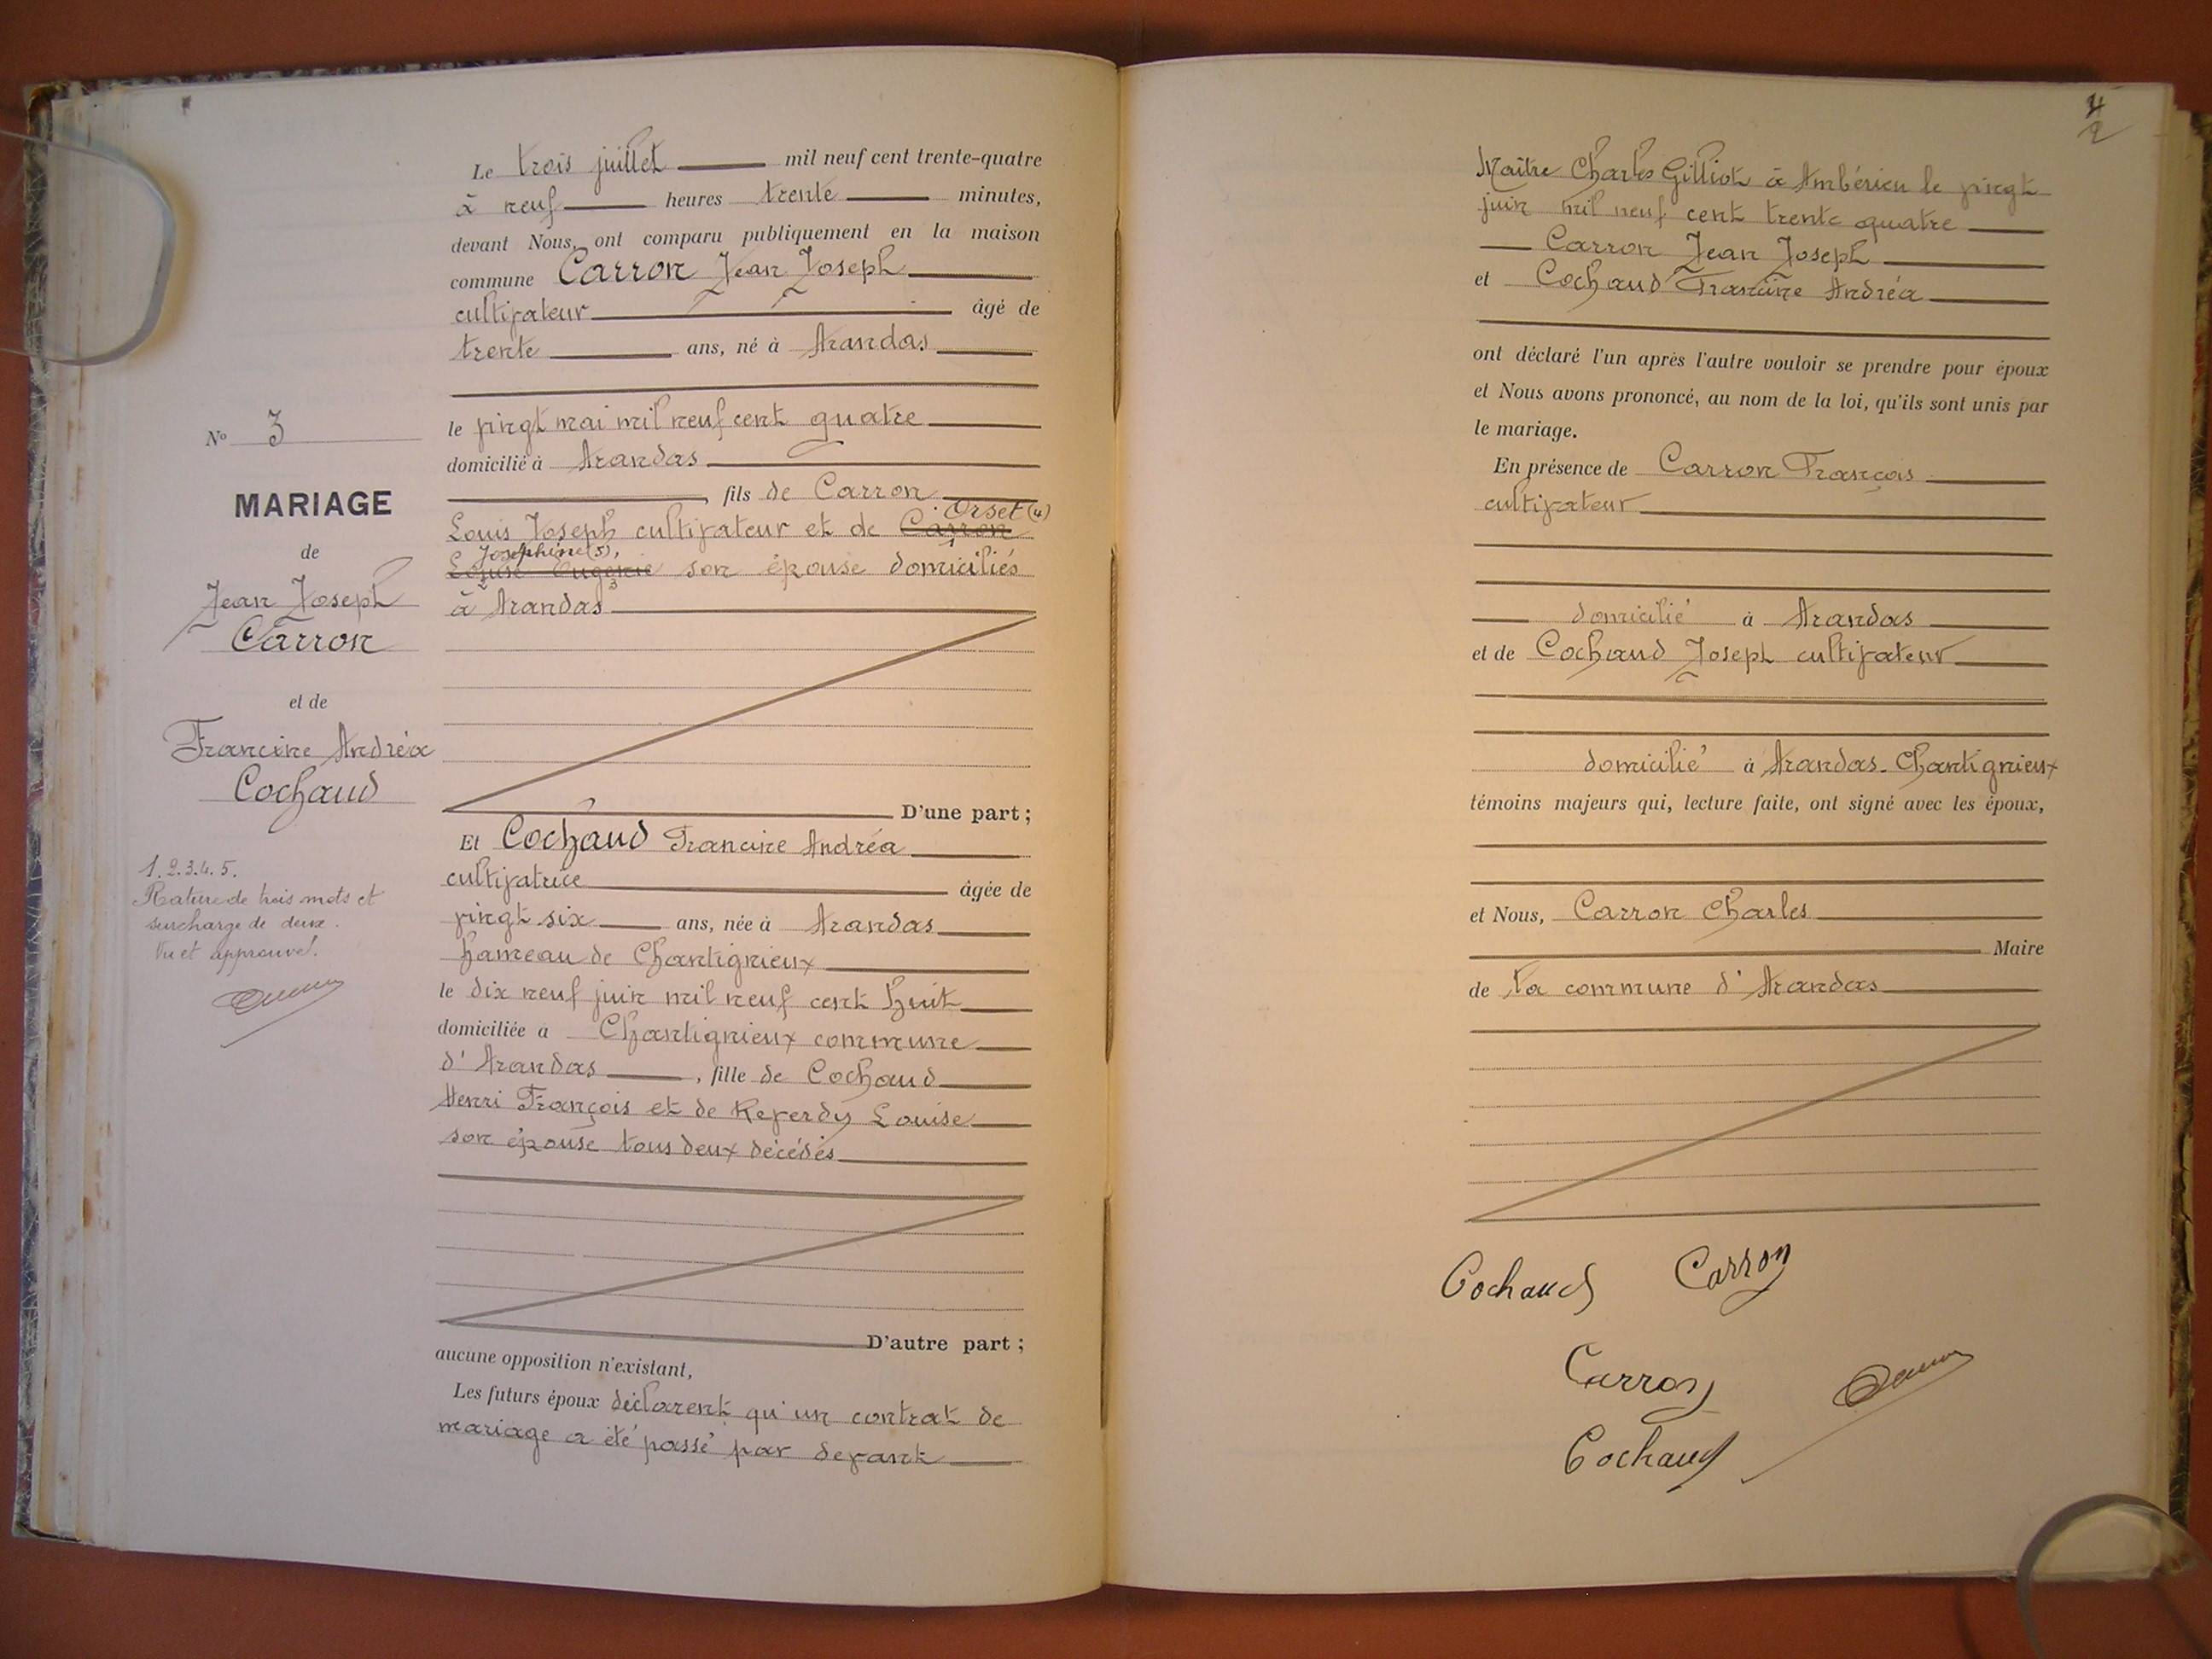 Le trois juillet mil neuf cent trente-quatre
à neuf heures trente minutes,
devant Nous, ont comparu publiquement en la maison
commune Carron Jean Joseph
cultivateur âgé de
trente ans, né à Arandas
le vingt mai mil neuf cent quatre
domicilié à Arandas
, fils de Carron
Orset (4)
Louis Joseph cultivateur et de Carron
1
Josephine (5),
Louise Eugenie son épouse domiciliés
2 3
à Arandas
D'une part ;
Et Cochaud Francine Andréa
cultivatrice âgée de
vingt six ans, née à Arandas
hameau de Chantignieux
le dix neuf juin mil neuf cent huit
domiciliée a Chantignieux commune
d'Arandas , fille de Cochaud
Henri François et de Reverdy Louise
son épouse tous deux décédés
D'autre part ;
aucune opposition n'existant,
Les futurs époux déclarent qu'un contrat de
mariage a été passé par devant
N° 3
MARIAGE
de
Jean Joseph
Carron
et de
Francine Andréa
Cochaud
1. 2. 3. 4. 5.
Rature de trois mots et
surcharge de deux.
Vu et approuvé.
4
2
Maître Charles Gilliot à Ambérieu le vingt
juin mil neuf cent trente quatre
Carron Jean Joseph
et Cochaud Francine Andréa
ont déclaré l'un après l'autre vouloir se prendre pour époux
et Nous avons prononcé, au nom de la loi, qu'ils sont unis par
le mariage.
En présence de Carron Françoas
cultivateur
domicilié à Arandas
et de Cochaud Joseph cultivateur
domicilié à Arandas. Chantignieux
témoins majeurs qui, lecture faite, ont signé avec les époux,
et Nous, Carron Charles
Maire
de la commune d'Arandas
Cochaud Carron
Carron
Cochaud